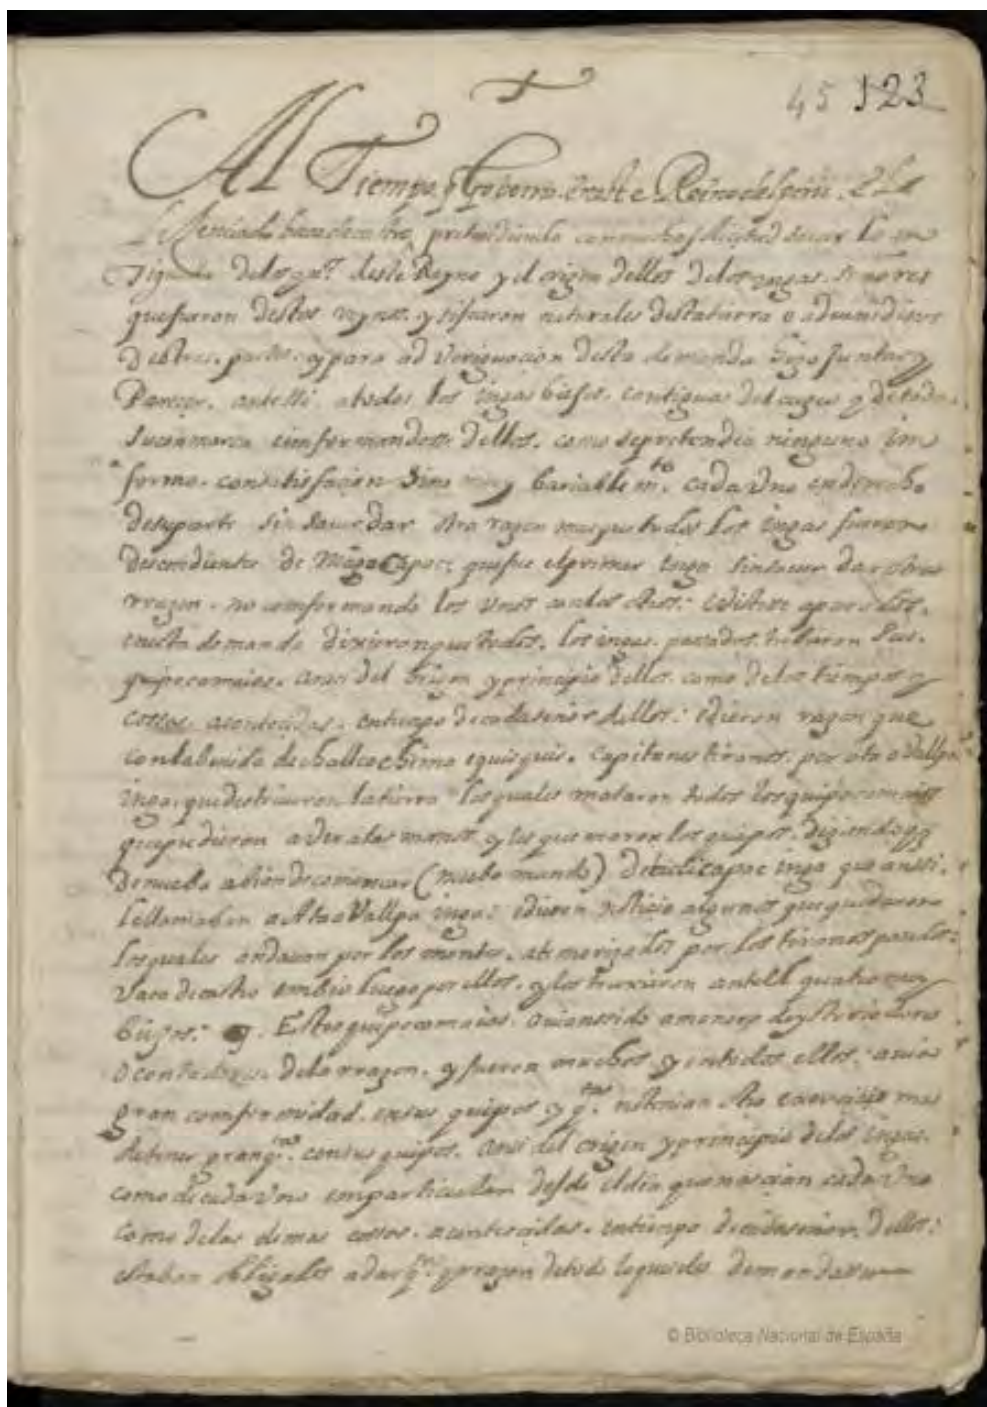 45 123
Al Tiempo q Governo. en este Reino del peru. El
Licenciado baca de castro pretendiendo con mucha solicitud sacar la an
tiguedad delos yn.os deste Reyno y el origen dellos delos yngas. señores
que fueron destos reynos. y si fueron naturales desta tierra o advenidisos
de otras. partes. y para adveriguacion desta demanda hizo Juntar y
Parecer. ante si. a todos los ingas biejos. e antiguos del cuzco y de toda
su comarca e imformandose dellos. como se pretendia ninguno im
formo. con satisfacion Sino muy bariablem.te cada Uno en derecho
de su parte sin saver dar otra razon mas que todos los ingas fueron
descendientes de Mãgo Capac que fue el primer inga sin saver dar otra
rrazon. no comformando los Unos con los otros:
en esta demanda dixieron que todos. los ingas. pasados. tubieron sus.
quipocamaios. ansi del origen y principio dellos. como de los tiempos y
cossas. acontecidas. en tiempo de cada señor dellos: e dieron razon que
con la benida de challcochima e quisquis. Capitanes tiranos. por ataovallpa
inga. que destruieron la tierra los quales mataron todos los quipocamaios
que pudieron aver a las manos. y les quemaron los quipos. diziendo q
de nuebo abian de comencar (nuebo mundo) de ticcicapac inga que anssi.
le llamaban a AtaoVallpa inga: e dieron noticia algunos que quedaron
los quales andavan por los montes. atemorizados por los tiranos pasados:
Vaca de castro embio luego por ellos. y les truxieron ante el quatro muy
biejos: Estos quipocamaios. avian sido a manera de ystoriadores
o contadores de la rrazon. y fueron muchos. y en todos ellos. avia
gran comformidad. en sus quipos y q.tas no tenian otro exercicio mas
de tener gran q.ta con sus quipos. ansi del origen y principio de los ingas.
como de cada Uno en particular desde el dia que nascian cada Uno
como de las demas cossas. acontecidas. en tiempo de cada señor. dellos:
estaban obligados a dar q.ta y razon de todo lo que se les demandase
© Biblioteca Nacional de España